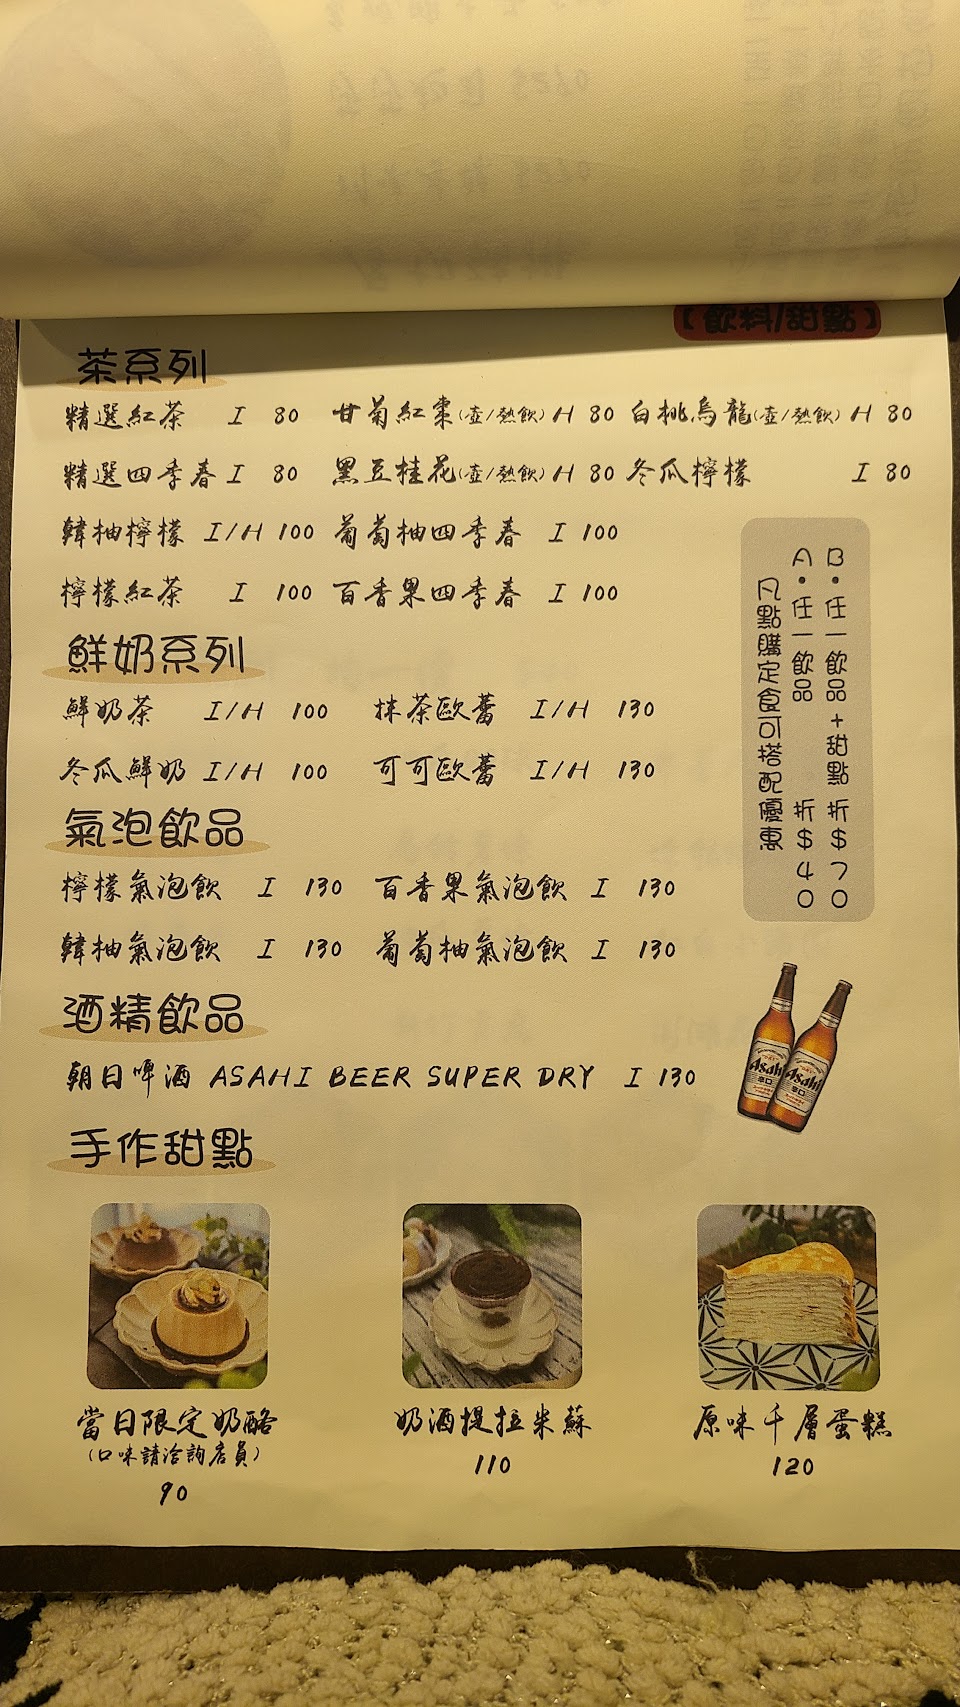 【飲料/甜點】
茶系列
精選紅茶 I 80 甘菊紅棗(壺/熱飲) H 80 白桃烏龍(壺/熱飲) H 80
精選四季春 I 80 黑豆桂花(壺/熱飲) H 80 冬瓜檸檬 I 80
韓柚檸檬 I/H 100 葡萄柚四季春 I 100
檸檬紅茶 I 100 百香果四季春 I 100
凡點購定食可搭配優惠
A•任一飲品 折$40
B•任一飲品+甜點 折$70
鮮奶系列
鮮奶茶 I/H 100 抹茶歐蕾 I/H 130
冬瓜鮮奶 I/H 100 可可歐蕾 I/H 130
氣泡飲品
檸檬氣泡飲 I 130 百香果氣泡飲 I 130
韓柚氣泡飲 I 130 葡萄柚氣泡飲 I 130
酒精飲品
朝日啤酒 ASAHI BEER SUPER DRY I 130
Asahi
辛口
Asahi
辛口
手作甜點
當日限定奶酪
(口味請洽詢店員)
90
奶酒提拉米蘇
110
原味千層蛋糕
120